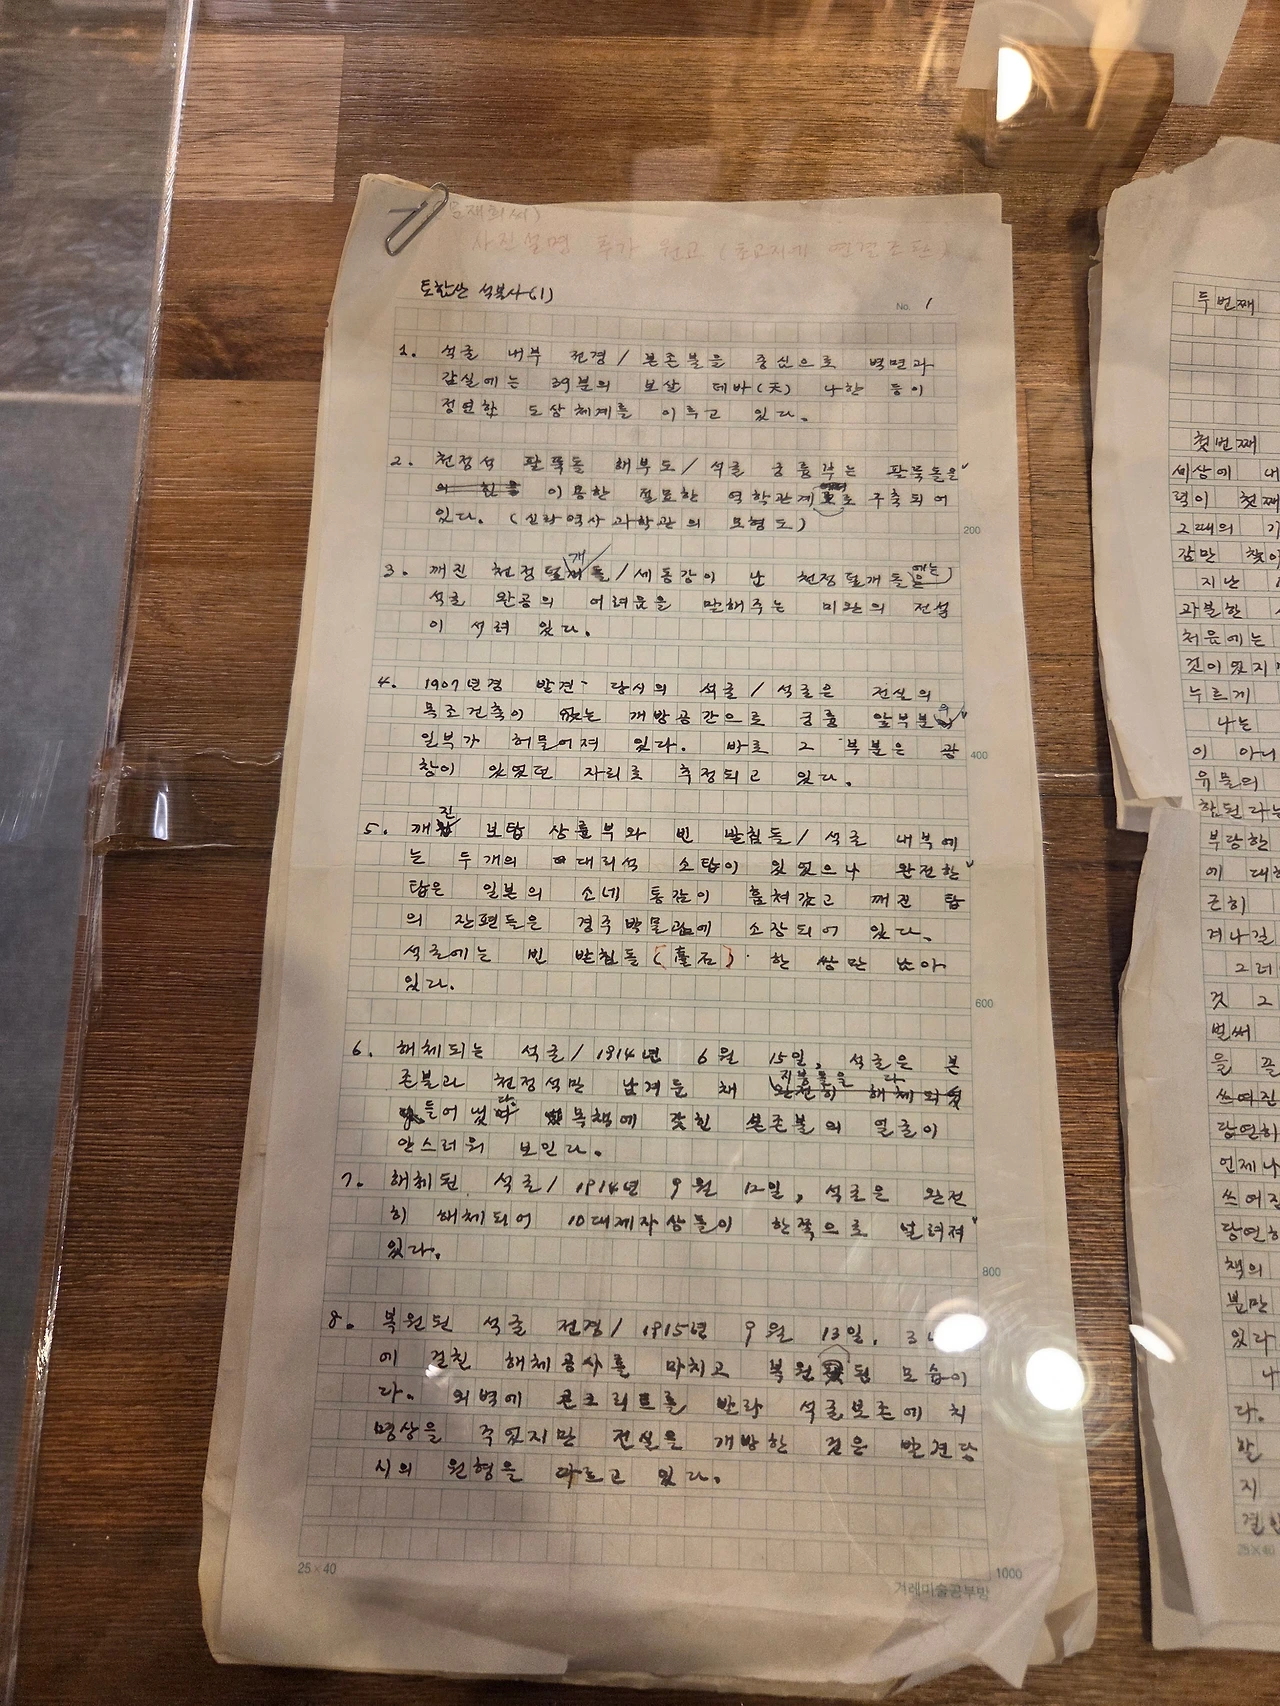 사진설명 추가 원고 (초교지가 연결조판)
토함산 석불사(1)
No. 1
1. 석굴 내부 전경 / 본존불을 중심으로 벽면과
감실에는 39분의 보살 데바(天) 나한 등이
정연한 도상체계를 이루고 있다.
2. 천정석 팔뚝돌 해부도 / 석굴 궁륭부는 팔뚝돌을
이용한 절묘한 역학관계로 구축되어
있다. (신라역사과학관의 모형도)
200
3. 깨진 천정덮개돌 / 세동강이 난 천정덮개돌에는
석굴 완공의 어려움을 말해주는 미완의 전설
이 서려 있다.
4. 1907년경 발견 당시의 석굴 / 석굴은 전실의
목조건축이 없는 개방공간으로 궁륭 앞부분의
일부가 허물어져 있다. 바로 그 부분은 광
400
창이 있었던 자리로 추정되고 있다.
5. 깨진 보탑 상륜부와 빈 받침돌 / 석굴 내부에
는 두개의 대리석 소탑이 있었으나 완전한
탑은 일본의 소네 통감이 훔쳐갔고 깨진 탑
의 잔편들은 경주박물관에 소장되어 있다.
석굴에는 빈 받침돌(臺石) 한 쌍만 남아
있다.
600
6. 해체되는 석굴 / 1914년 6월 15일, 석굴은 본
존불과 천정석만 남겨둔 채 지붕돌을 다
들어냈다. 목책에 갖힌 본존불의 얼굴이
안스러워 보인다.
7. 해체된 석굴 / 1914년 9월 12일, 석굴은 완전
히 해체되어 10대제자상들이 한쪽으로 널려져
있다.
800
8. 복원된 석굴 전경 / 1915년 9월 13일. 3
에 걸친 해체공사를 마치고 복원된 모습이
다. 외벽에 콘크리트를 발라 석굴보존에 치
명상을 주었지만 전실을 개방한 것은 발견당
시의 원형을 따르고 있다.
25×40
1000
겨레미술공부방
두번째
첫번째
세상에 내
력이 첫째
그때의 기
감만 찾아
지난
과분한
처음에는
것이 있지
누르게
나는
이 아니
유물의
함된다는
부당한
에 대한
근히
겨나길
그러
것 그
벌써
을 끝
당연히
언제나
쓰여질
당연히
책의
뿐만
있다
나
다.
할
지
25×40